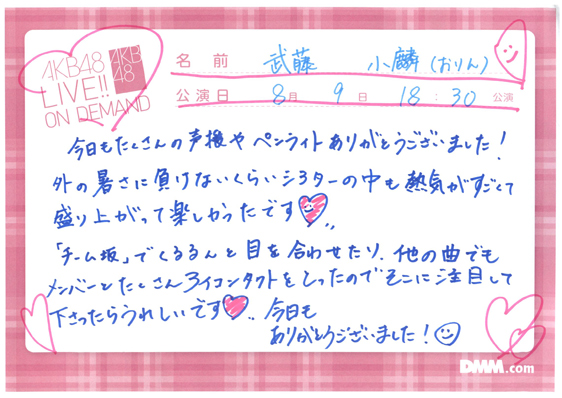 AKB48
LIVE!!
ON DEMAND
AKB
48
名前 武藤 小麟(おりん)
公演日 8月 9日 18:30 公演
今日もたくさんの声援や ペンライトありがとうございました!
外の暑さに負けないくらいシアターの中も熱気がすごくて
盛り上がって楽しかったです
「チーム坂」でくるるんと目を合わせたり、他の曲でも
メンバーとたくさんアイコンタクトをとったのでそこに注目して
下さったらうれしいです
今日も
ありがとうございました!
DMM.com